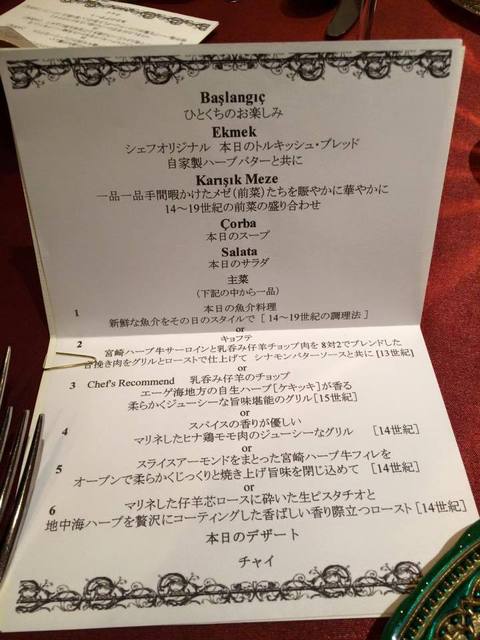 Başlangıç
ひとくちのお楽しみ
Ekmek
シェフオリジナル 本日のトルキッシュ・ブレッド
自家製ハーブバターと共に
Karışık Meze
一品一品手間暇かけたメゼ(前菜)たちを賑やかに華やかに
14〜19世紀の前菜の盛り合わせ
Çorba
本日のスープ
Salata
本日のサラダ
主菜
(下記の中から一品)
1 本日の魚介料理
新鮮な魚介をその日のスタイルで [ 14〜19世紀の調理法 ]
or
2 キョフテ
宮崎ハーブ牛サーロインと乳呑み仔羊チョップ肉を8対2でブレンドした
合挽き肉をグリルとローストで仕上げて シナモンバターソースと共に [13世紀]
or
3 Chef's Recommend 乳呑み仔羊のチョップ
エーゲ海地方の自生ハーブ[ケキッキ]が香る
柔らかくジューシーな旨味堪能のグリル[15世紀]
or
4 スパイスの香りが優しい
マリネしたヒナ鶏モモ肉のジューシーなグリル [14世紀]
or
5 スライスアーモンドをまとった宮崎ハーブ牛フィレを
オーブンで柔らかくじっくりと焼き上げ旨味を閉じ込めて [14世紀]
or
6 マリネした仔羊芯ロースに砕いた生ピスタチオと
地中海ハーブを贅沢にコーティングした香ばしい香り際立つロースト [14世紀]
本日のデザート
チャイ